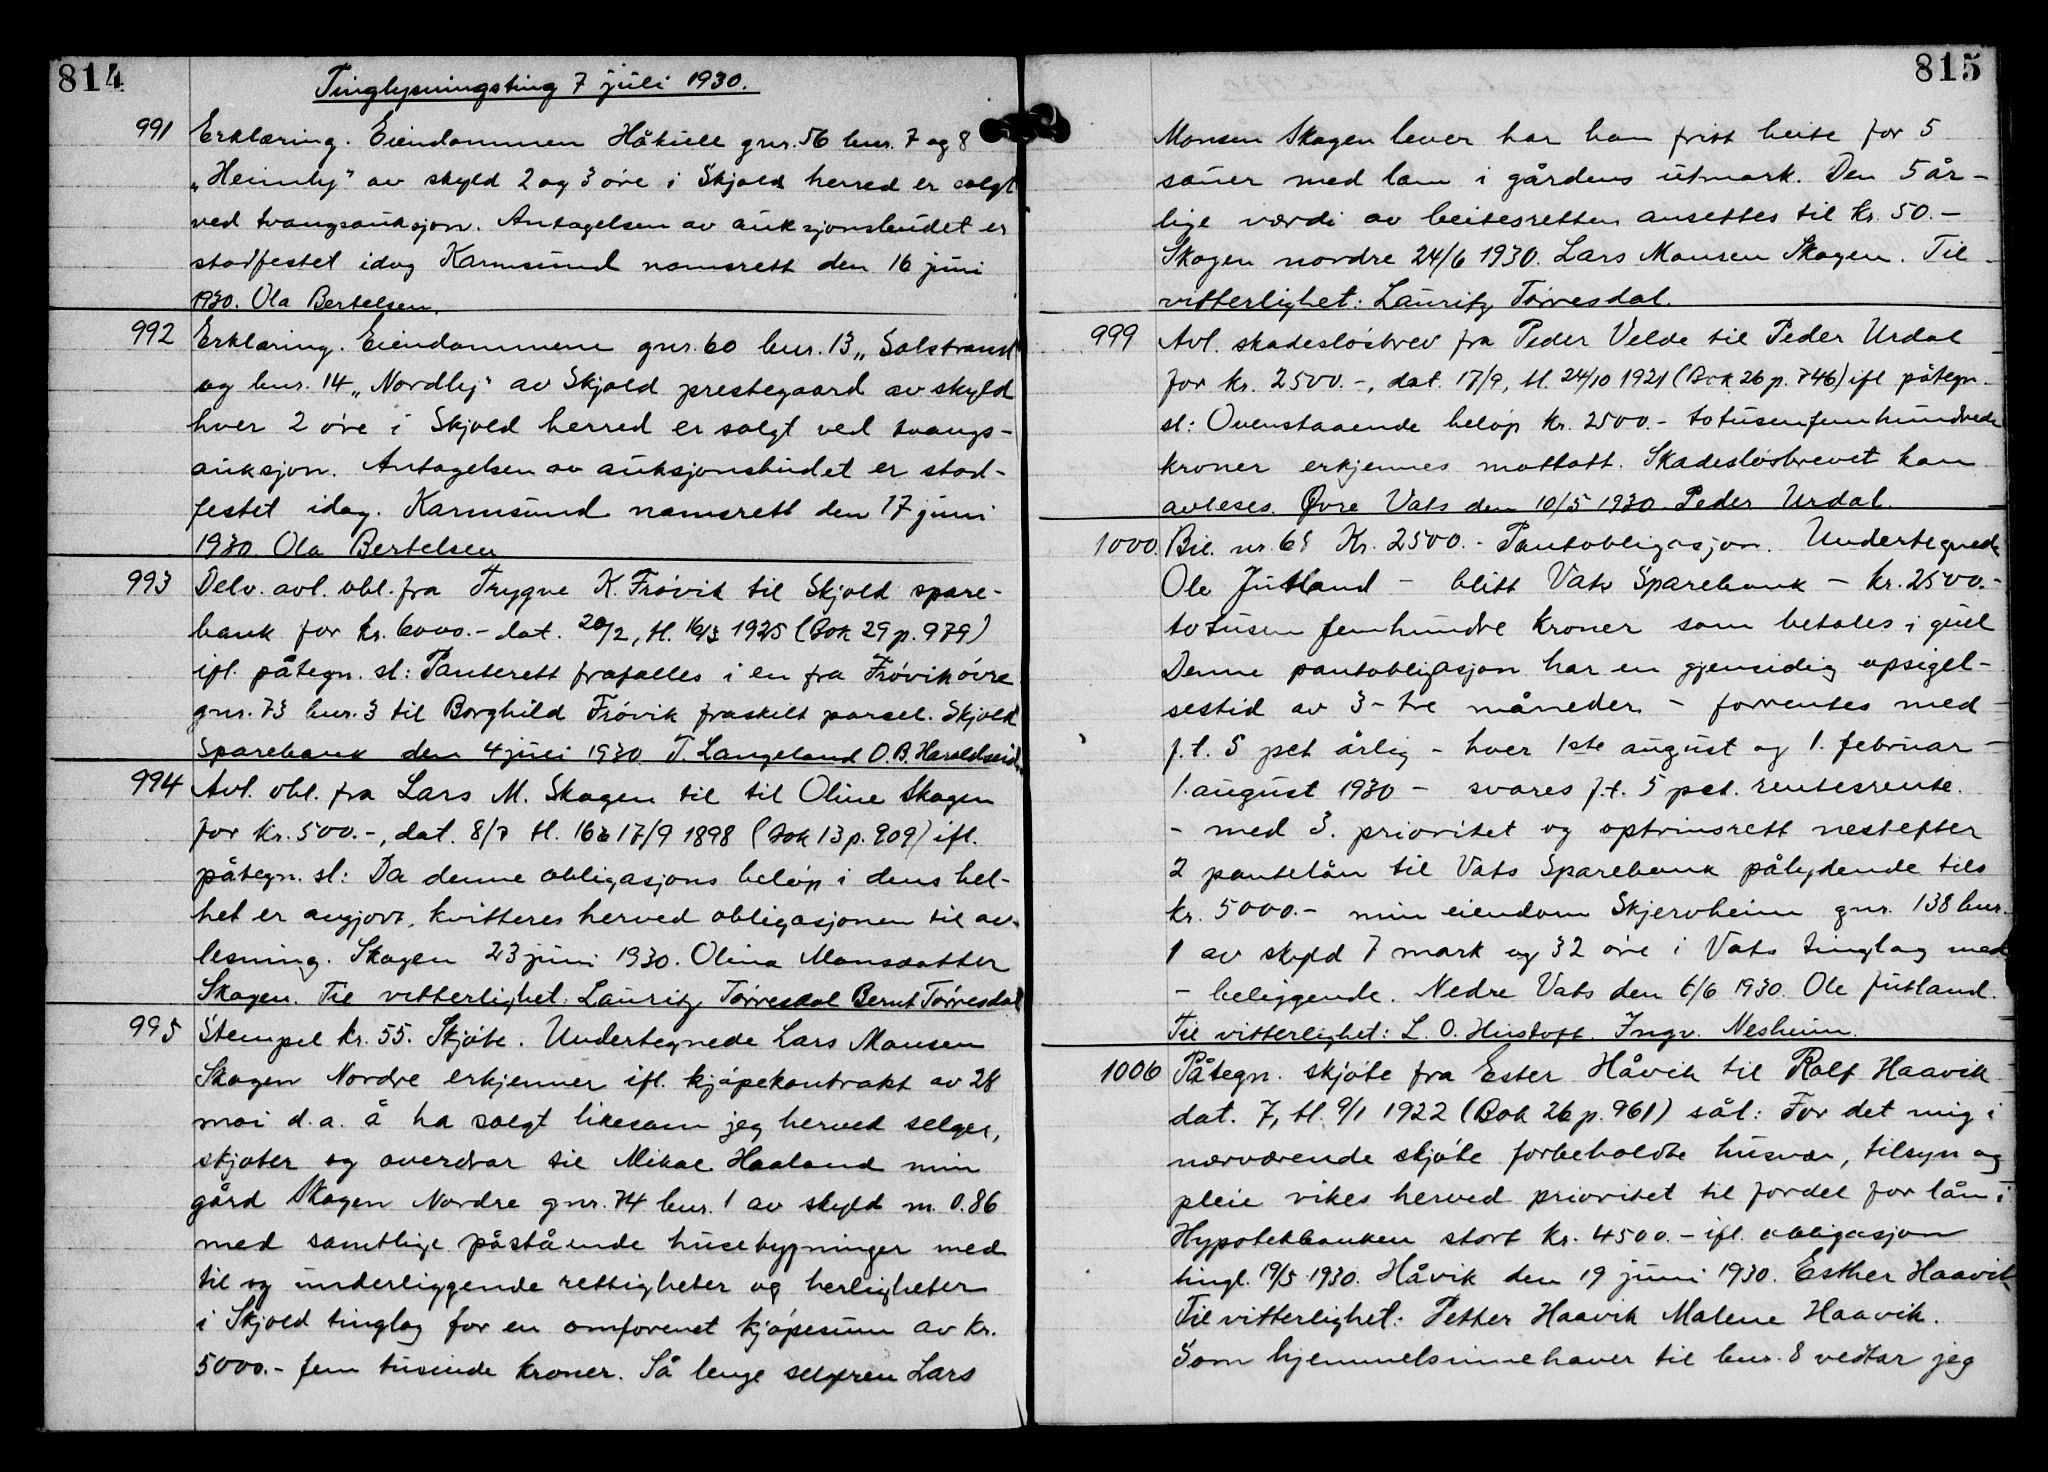 814
Tinglysningsting 7 juli 1930.
991 Erklæring. Eiendommen Håkull gnr. 56 bnr. 7 og 8
„Heimly" av skyld 2 og 3 øre i Skjold herred er solgt
ved tvangsauksjon. Antagelsen av auksjonsbudet er
stadfestet idag Karmsund namsrett den 16 juni
1930. Ola Bertelsen.
992 Erklæring. Eiendommene gnr. 60 bnr. 13 „Solstrand"
og bnr. 14 „Nordly" av Skjold prestegaard av skyld
hver 2 øre i Skjold herred er solgt ved tvangs-
auksjon. Antagelsen av auksjonsbudet er stad-
festet idag. Karmsund namsrett den 17 juni
1930. Ola Bertelsen
993 Delv. avl. obl. fra Trygve K. Frøvik til Skjold spare-
bank for kr. 6000.- dat. 20/2, tl. 16/3 1925 (Bok 29 p. 979)
ifl. påtegn. sl: Panterett frafalles i en fra Frøvik øvre
gnr. 73 bnr. 3 til Borghild Frøvik fraskilt parsel. Skjold
Sparebank den 4 juli 1930 T. Langeland O. B. Haraldseid.
994 Avl. obl. fra Lars M. Skogen til til Oline Skogen
for kr. 500.-, dat. 8/7 tl. 16 17/9 1898 (Bok 13 p. 909) ifl.
påtegn. sl: Da denne obligasjons beløp i dens hel-
het er avgjort, kvitteres herved obligasjonen til av-
lesning. Skogen 23 juni 1930. Olina Monsdatter
Skogen. Til vitterlighet: Lauritz Tørresdal Bernt Tørresdal
995 Stempel kr. 55. Skjøte. Undertegnede Lars Monsen
Skogen Nordre erkjenner ifl. kjøpekontrakt av 28
mai d.a. å ha solgt likesom jeg herved selger,
skjøter og overdrar til Mikal Haaland min
gård Skogen Nordre gnr. 74 bnr. 1 av skyld m. 0.86
med samtlige påstående husebygninger med
til og underliggende rettigheter og herligheter
i Skjold tinglag for en omforenet kjøpesum av kr.
5000.- fem tusinde kroner. Så lenge selgeren Lars
815
Monsen Skogen lever har han fritt beite for 5
sauer med lam i gårdens utmark. Den 5 år-
lige verdi av beitesretten ansettes til kr. 50.-
Skogen nordre 24/6 1930. Lars Monsen Skogen. Til
vitterlighet: Lauritz Tørresdal.
999 Avl. skadesløsbrev fra Peder Velde til Peder Urdal
for kr. 2500.-, dat. 17/9, tl. 24/10 1921 (Bok 26 p. 746) ifl påtegn.
sl: Ovenstaaende beløp kr. 2500.- totusenfemhundrede
kroner erkjennes mottatt. Skadesløsbrevet kan
avleses. Øvre Vats den 10/5 1930 Peder Urdal.
1000. Bil. nr. 68 Kr. 2500.- Pantobligasjon. Undertegnede
Ole Jutland - blitt Vats Sparebank - kr. 2500.-
totusen femhundre kroner som betales i gull
Denne pantobligasjon har en gjensidig opsigel-
sestid av 3 - tre måneder - forrentes med -
f.t. 5 pct årlig - hver 1ste august og 1. februar -
1. august 1930 - svares f.t. 5 pct. rentesrente.
- med 3. prioritet og optrinsrett nestefter
2 pantelån til Vats Sparebank pålydende tils
kr. 5000.- min eiendom Skjervheim gnr. 138 bnr.
1 av skyld 7 mark og 32 øre i Vats tinglag med
- beliggende. Nedre Vats den 6/6 1930. Ole Jutland.
Til vitterlighet: L. O. Hustoft. Ingv. Nesheim.
1006 Påtegn. skjøte fra Ester Håvik til Rolf Haavik
dat. 7, tl. 9/1 1922 (Bok 26 p. 961) sål: For det mig i
nærværende skjøte forbeholdte husvær, tilsyn og
pleie vikes herved prioritet til fordel for lån i
Hypotekbanken stort kr. 4500.- ifl. obligasjon
tingl. 19/5 1930. Håvik den 19 juni 1930. Esther Haavik
Til vitterlighet: Petter Haavik Malene Haavik.
Som hjemmelsinnehaver til bnr. 8 vedtar jeg